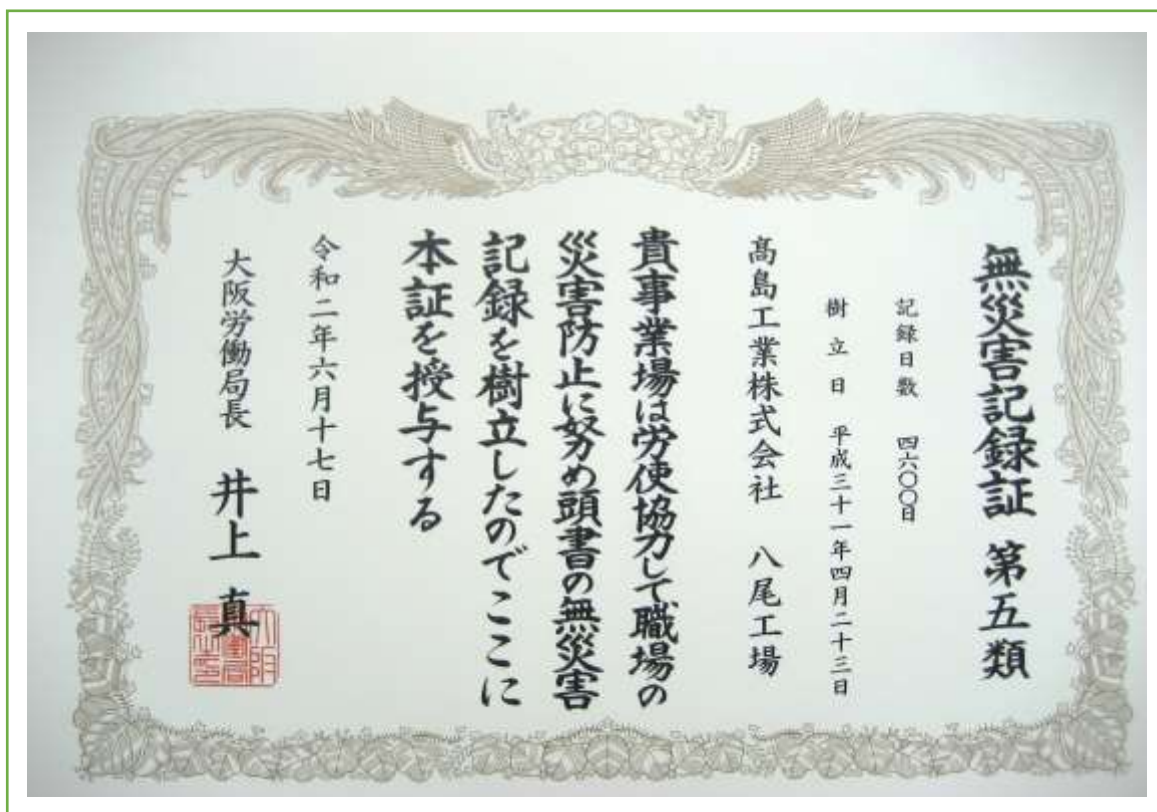 無災害記録証 第五類
記録日数 四六〇〇日
樹立日 平成三十一年四月二十三日
髙島工業株式会社 八尾工場
貴事業場は労使協力して職場の
災害防止に努め頭書の無災害
記録を樹立したのでここに
本証を授与する
令和二年六月十七日
大阪労働局長 井上 真